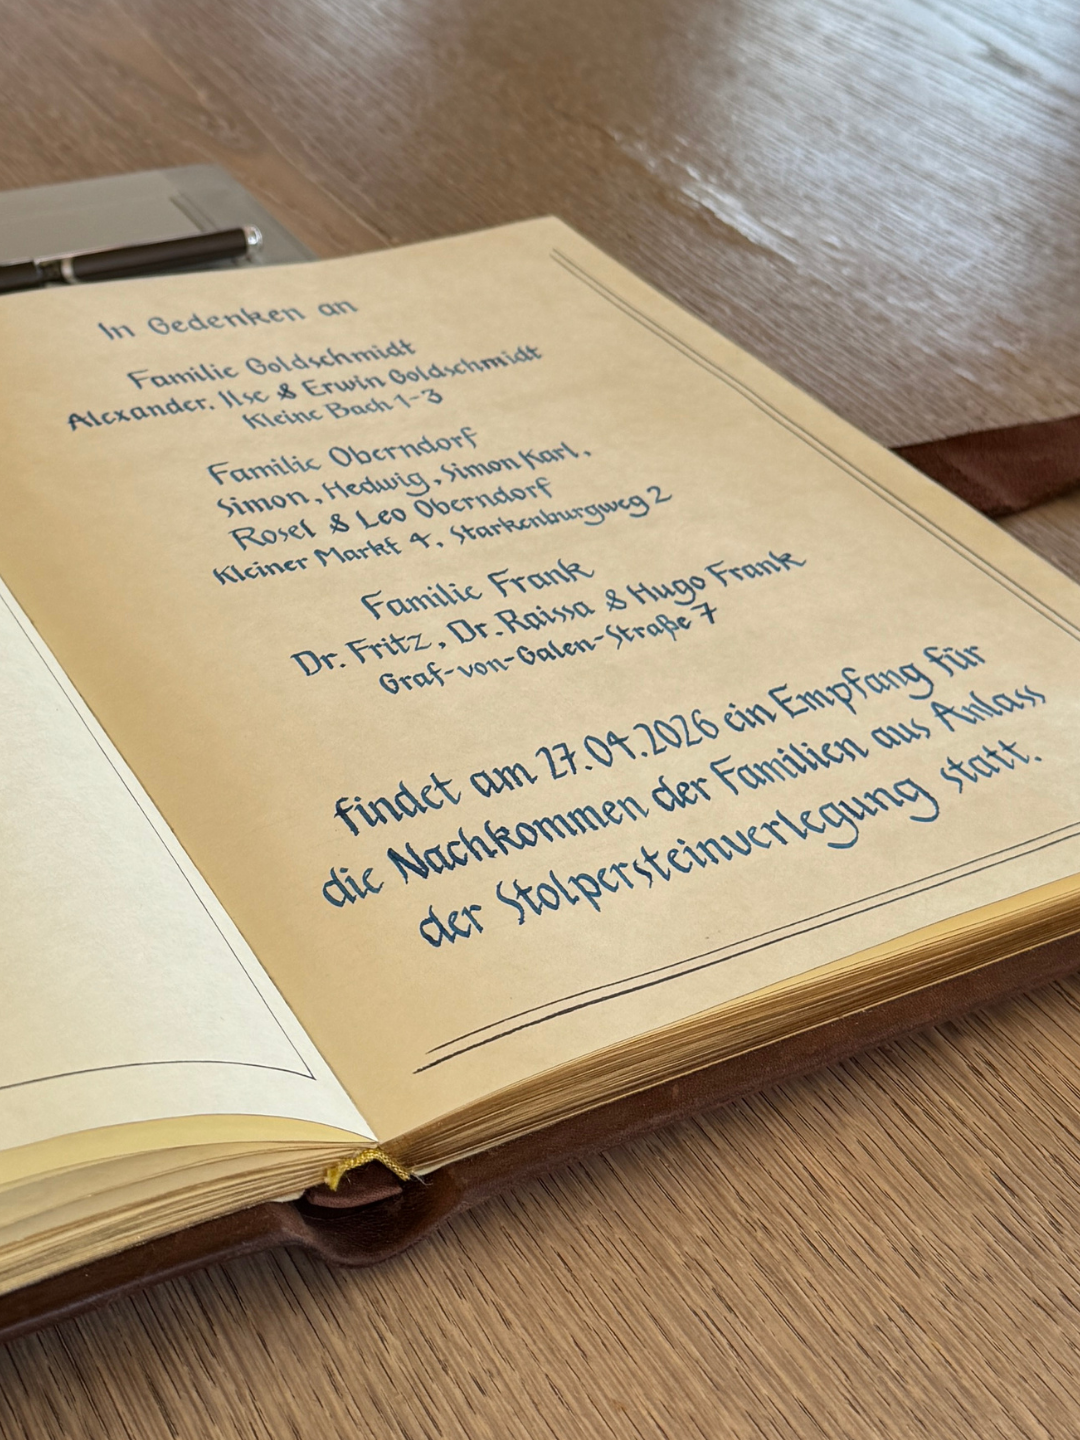 In Gedenken an
Familie Goldschmidt
Alexander, Ilse & Erwin Goldschmidt
Kleine Bach 1-3
Familie Oberndorf
Simon, Hedwig, Simon Karl,
Rosel & Leo Oberndorf
Kleiner Markt 4, Starkenburgweg 2
Familie Frank
Dr. Fritz, Dr. Raissa & Hugo Frank
Graf-von-Galen-Straße 7
findet am 27.04.2026 ein Empfang für
die Nachkommen der Familien aus Anlass
der Stolpersteinverlegung statt.